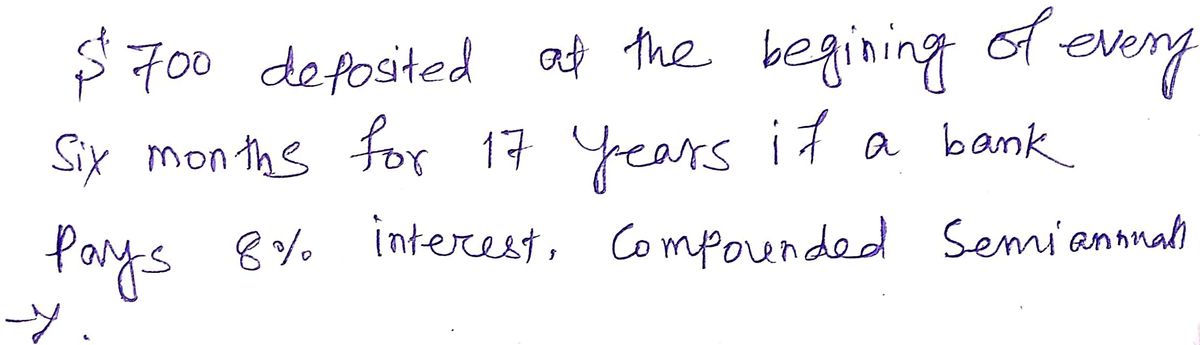 $ 700 deposited at the begining of every
Six months for 17 years if a bank
Pays 8% interest. Compounded Semiannuall
-y.